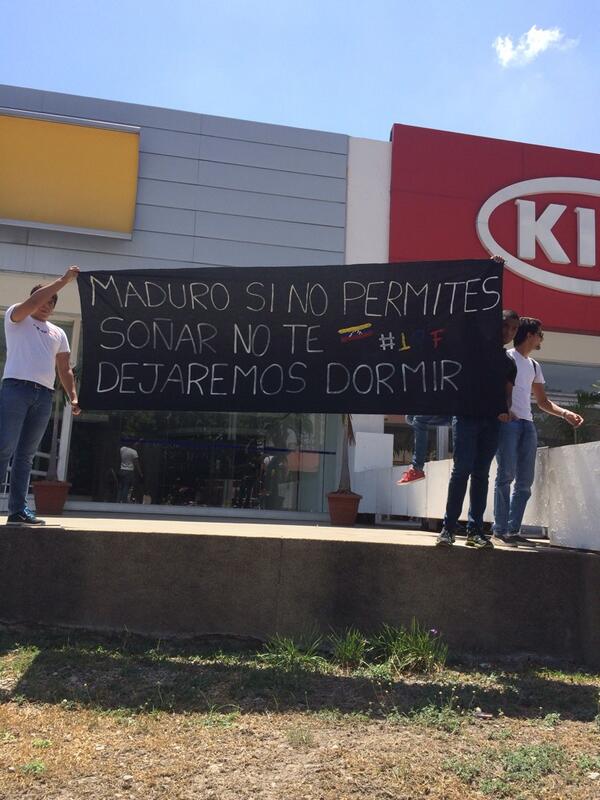 KI
MADURO SI NO PERMITES
SOÑAR NO TE #12F
DEJAREMOS DORMIR